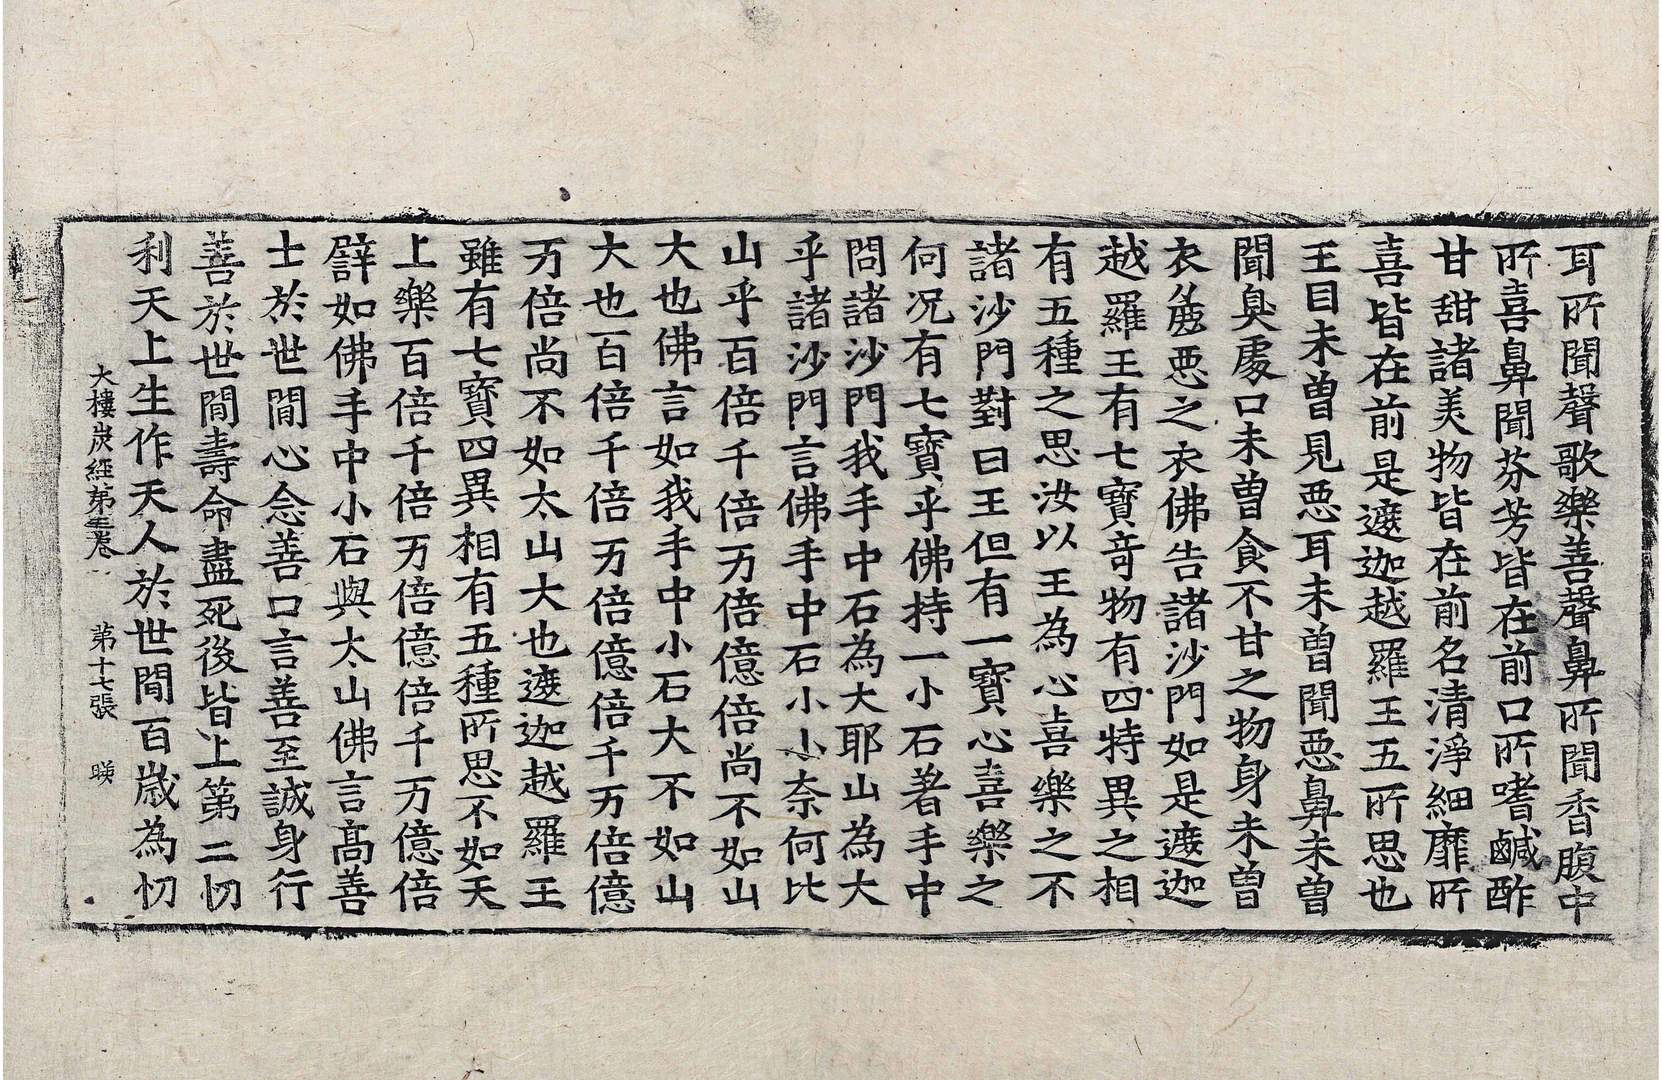 耳所聞聲歌樂善聲鼻所聞香腹中
所喜鼻聞芬芳皆在前口所嗜鹹酢
甘甜諸美物皆在前名清淨細靡所
喜皆在前是遮迦越羅王五所思也
王目未曾見悪耳未曾聞悪鼻未曾
聞臭處口未曾食不甘之物身未曾
衣麁悪之衣佛告諸沙門如是遮迦
越羅王有七寶竒物有四特異之相
有五種之思汝以王為心喜樂之不
諸沙門對曰王但有一寶心喜樂之
何况有七寶乎佛持一小石著手中
問諸沙門我手中石為大耶山為大
乎諸沙門言佛手中石小小奈何比
山乎百倍千倍万倍億倍尚不如山
大也佛言如我手中小石大不如山
大也百倍千倍万倍億倍千万倍億
万倍尚不如太山大也遮迦越羅王
雖有七寶四異相有五種所思不如天
上樂百倍千倍万倍億倍千万億倍
譬如佛手中小石與太山佛言髙善
士於世間心念善口言善至誠身行
善於世間壽命盡死後皆上第二忉
利天上生作天人於世間百歲為忉
大樓炭經第三卷 第十七張